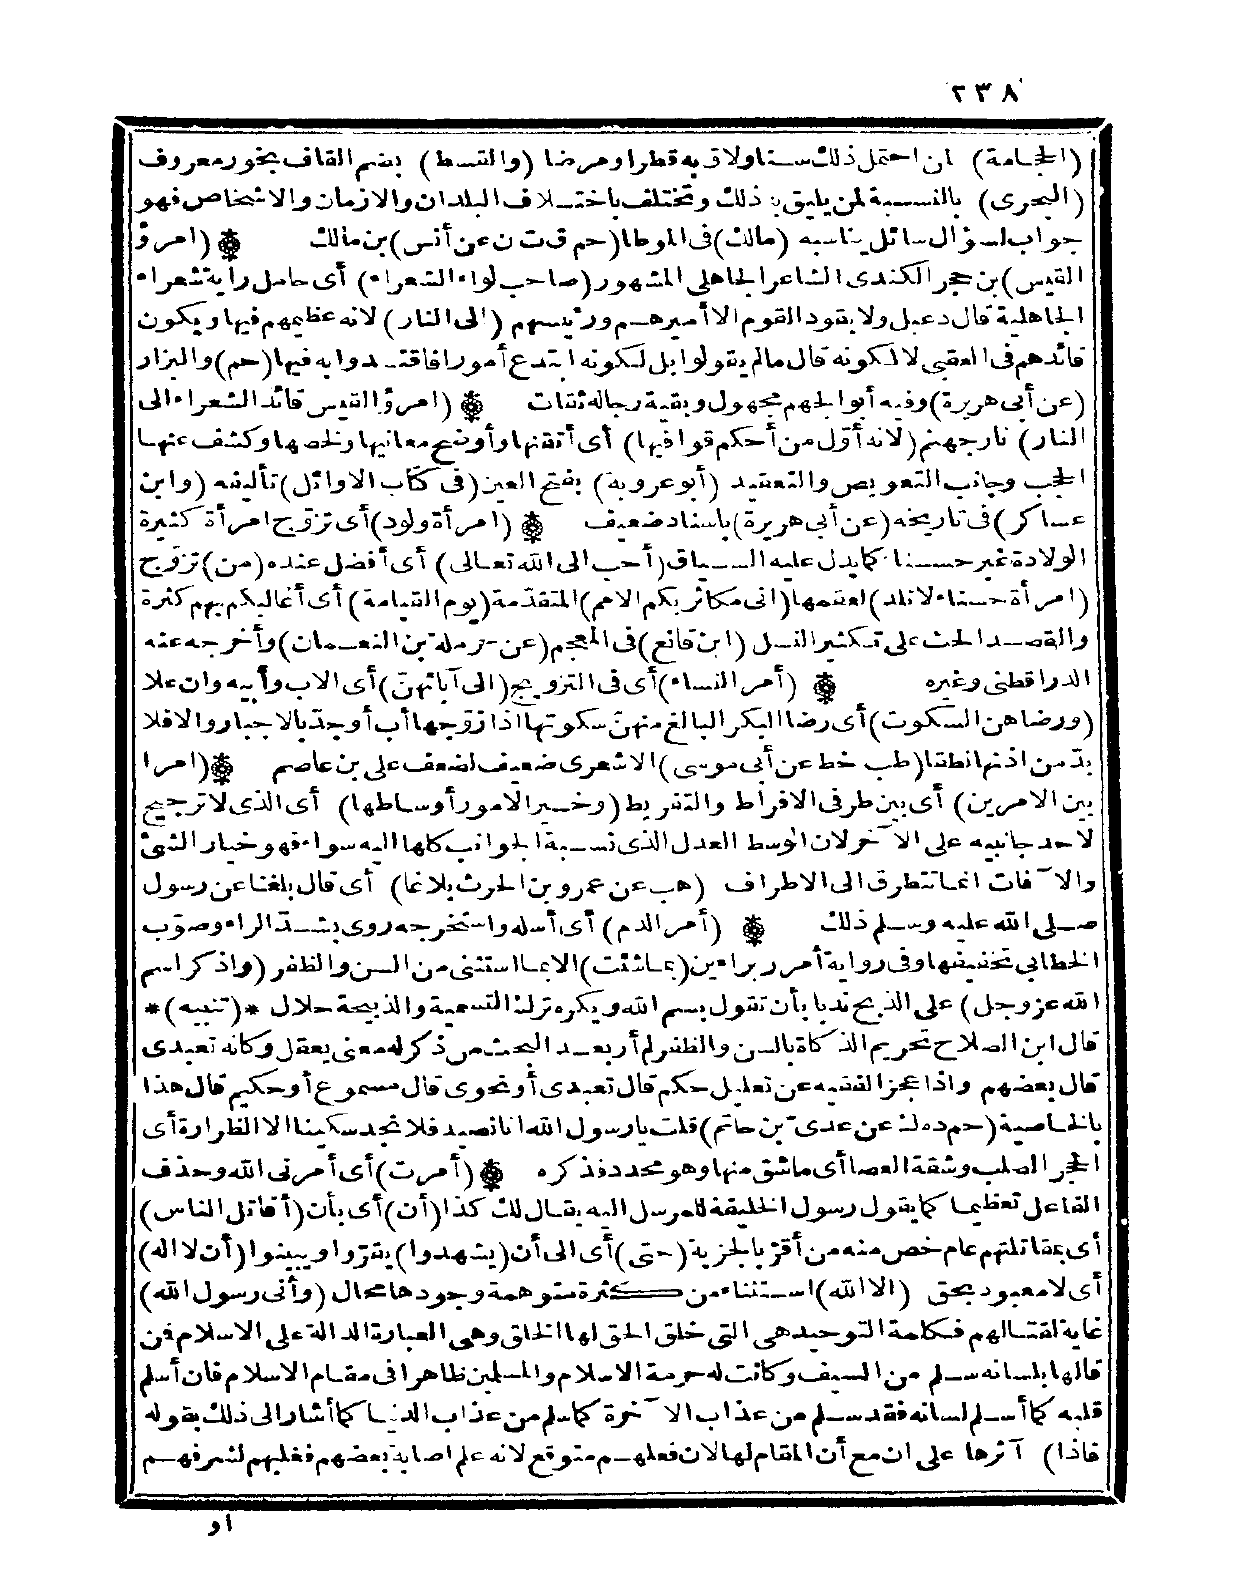 ٢٣٨
(الحجامة) ان احتمل ذلك سنا ولاق به قطرا ومرضا (والقسط) بضم القاف بخور معروف
(البحرى) بالنسبة لمن يليق به ذلك وتختلف باختلاف البلدان والازمان والاشخاص فهو
جواب لسؤال سائل يناسبه (مالك) فى الموطا (حم ق ت ن عن أنس) بن مالك ۞ (امرؤ
القيس) بن حجر الكندى الشاعر الجاهلى المشهور (صاحب لواء الشعراء) أى حامل راية شعراء
الجاهلية قال دعبل ولا يقود القوم الا أميرهم ورئيسهم (الى النار) لانه عظيمهم فيها ويكون
قائدهم فى العقبى لا لكونه قال مالم يقولوا بل لكونه ابتدع أمورا فاقتدوا به فيها (حم) والبزار
(عن أبى هريرة) وفيه أبو الجهم مجهول وبقية رجاله ثقات ۞ (امرؤ القيس قائد الشعراء الى
النار) نار جهنم (لانه أوّل من أحكم قوافيها) أى أتقنها وأوضح معانيها ولخصها وكشف عنها
الحجب وجانب التعويص والتعقيد (أبو عروبة) بفتح العين (فى كتاب الاوائل) تأليفه (وابن
عساكر) فى تاريخه (عن أبى هريرة) باسناد ضعيف ۞ (امرأة ولود) أى تزوّج امرأة كثيرة
الولادة غير حسنا، كما يدل عليه السياق (أحب الى الله تعالى) أى أفضل عنده (من) تزوّج
(امرأة حسناء لا تلد) لعقمها (انى مكاثر بكم الامم) المتقدّمة (يوم القيامة) أى أغالبكم بهم كثرة
والقصد الحث على تكثير النسل (ابن قانع) فى المعجم (عن حرملة بن النعمان) وأخرجه عنه
الدراقطنى وغيره ۞ (أمر النساء) أى فى التزويج (الى آبائهنّ) أى الاب وأبيه وان علا
(ورضاهن السكوت) أى رضا البكر البالغ منهنّ سكوتها اذا زوّجها أب أو جدّ بالاجبار والافلا
بدّ من اذنها نطقا (طب خط عن أبى موسى) الاشعرى ضعيف لضعف على بن عاصم ۞ (امرا
بين الامرين) أى بين طرفى الافراط والتفريط (وخير الامور أوساطها) أى الذى لا ترجيح
لاحد جانبيه على الآخر لان الوسط العدل الذى نسبة الجوانب كلها اليه سواء فهو خيار الشئ
والآفات انما تتطرق الى الاطراف (هب عن عمرو بن الحرث بلاغا) أى قال بلغنا عن رسول
صلى الله عليه وسلم ذلك ۞ (أمر الدم) أى أسله واستخرجه روى بشدّ الراء وصوّب
الخطابى تخفيفها وفى رواية أمرر براءين (بما شئت) الا ما استثنى من السن والظفر (واذكر اسم
الله عز وجل) على الذبح ندبا بأن تقول بسم الله ويكره ترك التسمية والذبيحة حلال *(تنبيه)*
قال ابن الصلاح تحريم الذكاة بالسن والظفر لم أر بعد البحث من ذكر له معنى يعقل وكانه تعبدى
قال بعضهم واذا عجز الفقيه عن تعليل حكم قال تعبدى أو نحوى قال مسموع أو حكيم قال هذا
بالخاصية (حم د ه ك عن عدىّ بن حاتم) قلت يا رسول الله انا نصيد فلا نجد سكينا الا الظرارة أى
الحجر الصلب وشقة العصا أى ما شق منها وهو محدد فذكره ۞ (أمرت) أى أمرنى الله وحذف
الفاعل تعظيما كما يقول رسول الخليفة للمرسل اليه يقال لك كذا (أن) أى بأن (أقاتل الناس)
أى بمقاتلتهم عام خص منه من أقرّ بالجزية (حتى) أى الى أن (يشهدوا) يقرّوا ويبينوا (أن لا اله)
أى لا معبود بحق (الا الله) استثناء من كثرة متوهمة وجودها محال (وأنى رسول الله)
غاية لقتالهم فكلمة التوحيد هى التى خلق الحق لها الخلق وهى العبارة الدالة على الاسلام فمن
قالها بلسانه سلم من السيف وكانت له حرمة الاسلام والمسلمين ظاهرا فى مقام الاسلام فان أسلم
قلبه كما أسلم لسانه فقد سلم من عذاب الآخرة كما سلم من عذاب الدنيا كما أشار الى ذلك بقوله
فاذا) آثرها على ان مع أن المقام لها لان فعلهم متوقع لانه علم اصابة بعضهم فغلبهم لشرفهم
او